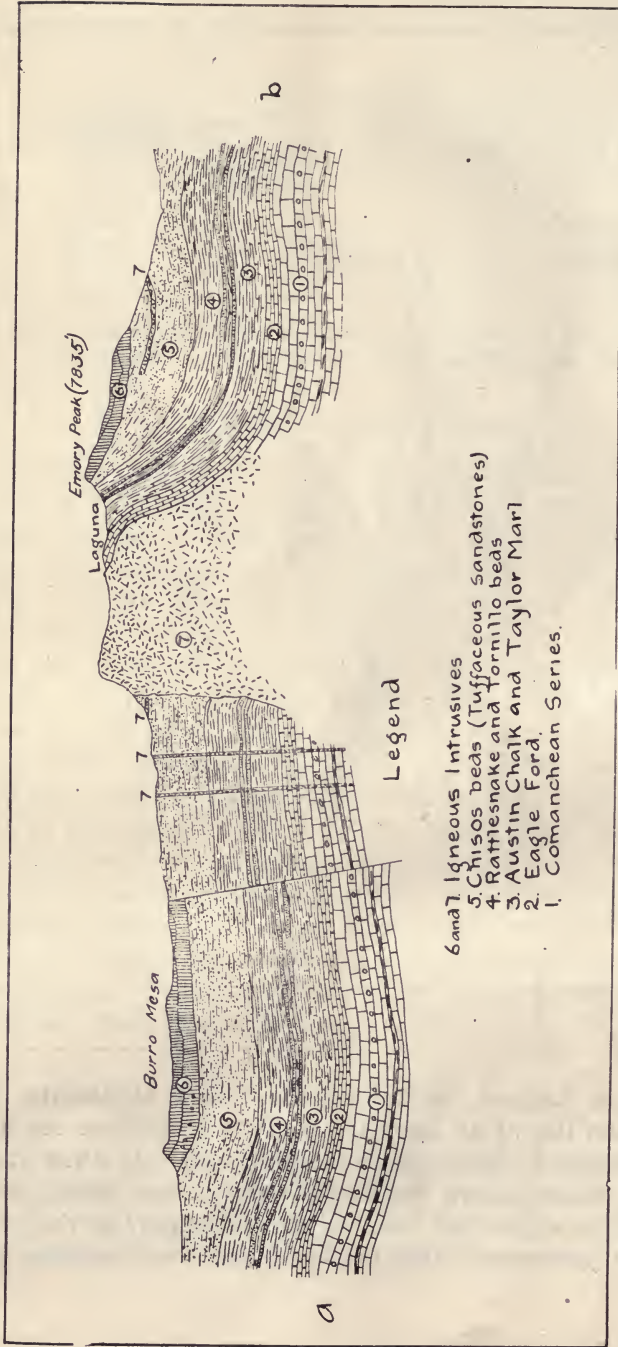 a
Burro Mesa
6
5
4
3
2
1
7
7
7
7
Laguna
Emory Peak (7835)
6
7
5
4
3
2
1
b
Legend
6 and 7. Igneous Intrusives
5. Chisos beds (Tuffaceous sandstones)
4. Rattlesnake and Tornillo beds
3. Austin Chalk and Taylor Marl
2. Eagle Ford.
1. Comanchean Series.